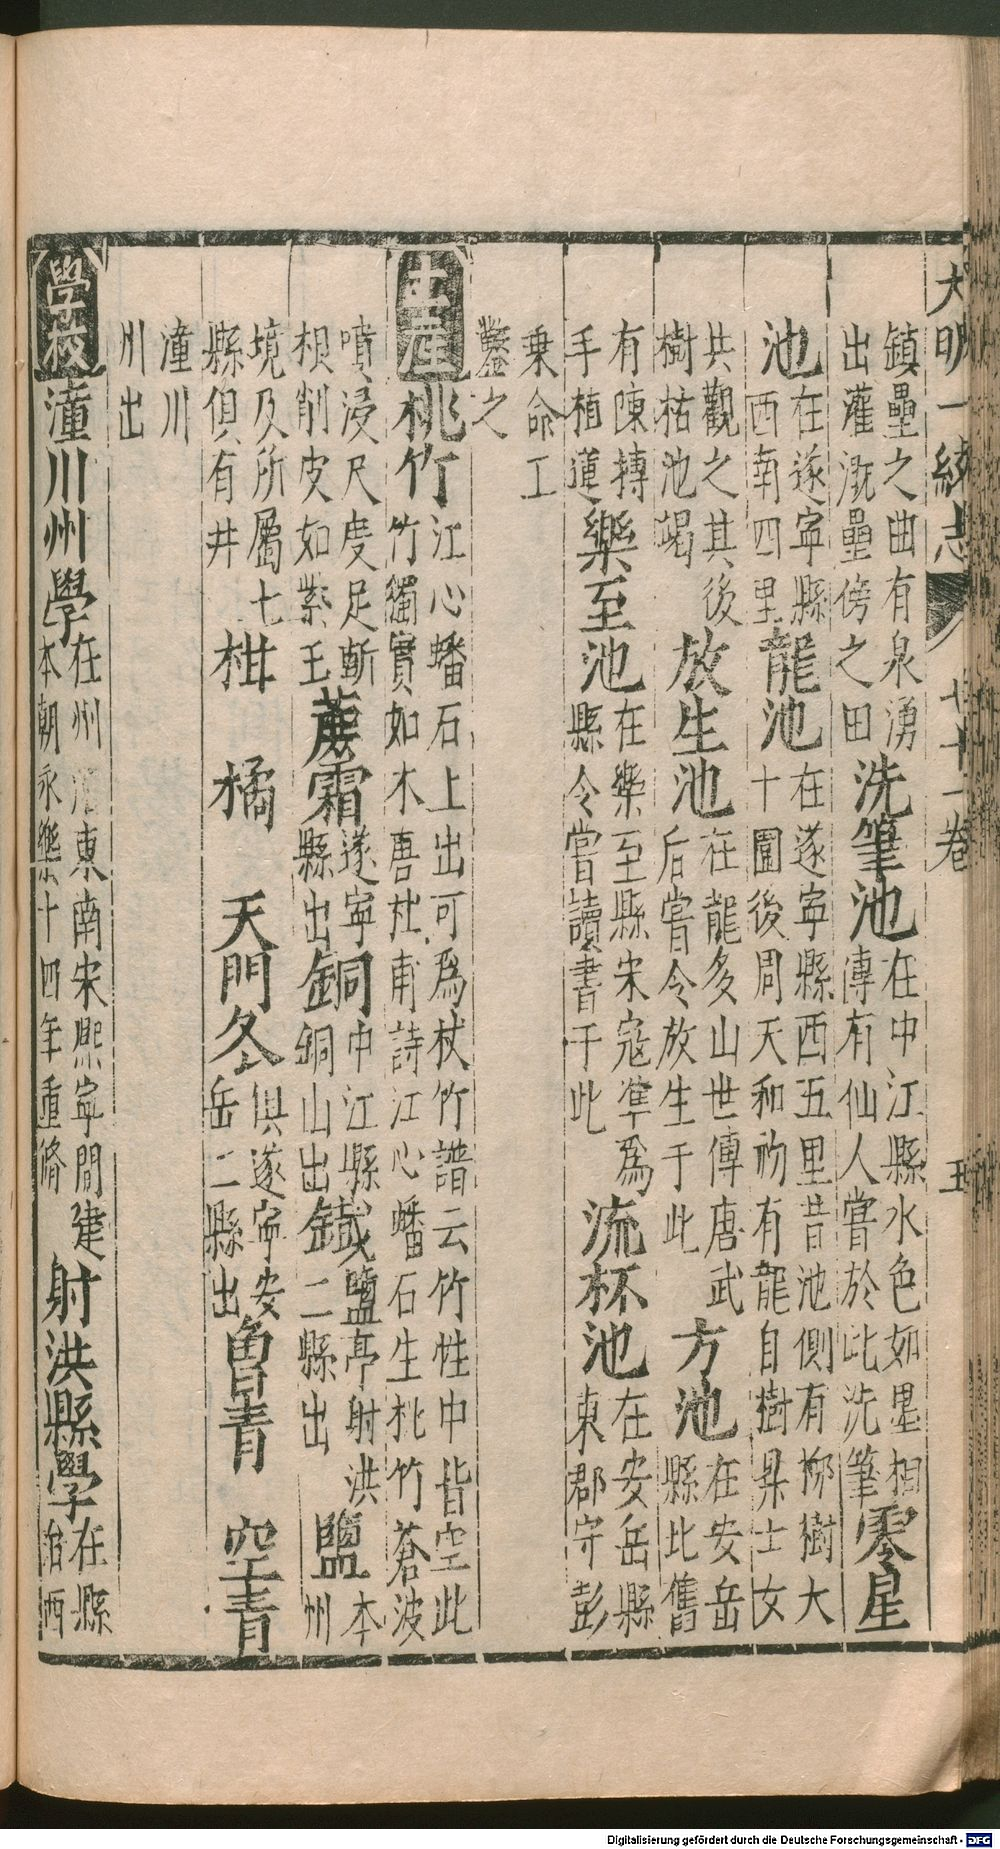 大明一統志 七十一卷 五
鎮壘之曲有泉湧
出灌溉壘傍之田洗筆池在中江縣水色如墨相
傳有仙人嘗於此洗筆零星
池在遂寧縣
西南四里龍池在遂寧縣西五里昔池側有柳樹大
十圍後周天和初有龍自樹昇士女
共觀之其後
樹枯池竭放生池在龍多山世傳唐武
后嘗令放生于此方池在安岳
縣北舊
有陳摶
手植蓮樂至池在樂至縣宋寇準爲
縣令嘗讀書于此流杯池在安岳縣
東郡守彭
乗命工
鑿之
土産桃竹江心蟠石上出可爲杖竹譜云竹性中皆空此
竹獨實如木唐杜甫詩江心蟠石生桃竹蒼波
噴浸尺度足斬
根削皮如紫玉蔗霜遂寧
縣出銅中江縣
銅山出鐵鹽亭射洪
二縣出鹽本
州
境及所屬七
縣俱有井柑 橘 天門冬俱遂寧安
岳二縣出魯青 空青
潼川
州出
學校潼川州學在州東南宋熙寧間建
本朝永樂十四年重脩射洪縣學在縣
治西
Digitalisierung gefördert durch die Deutsche Forschungsgemeinschaft - DFG